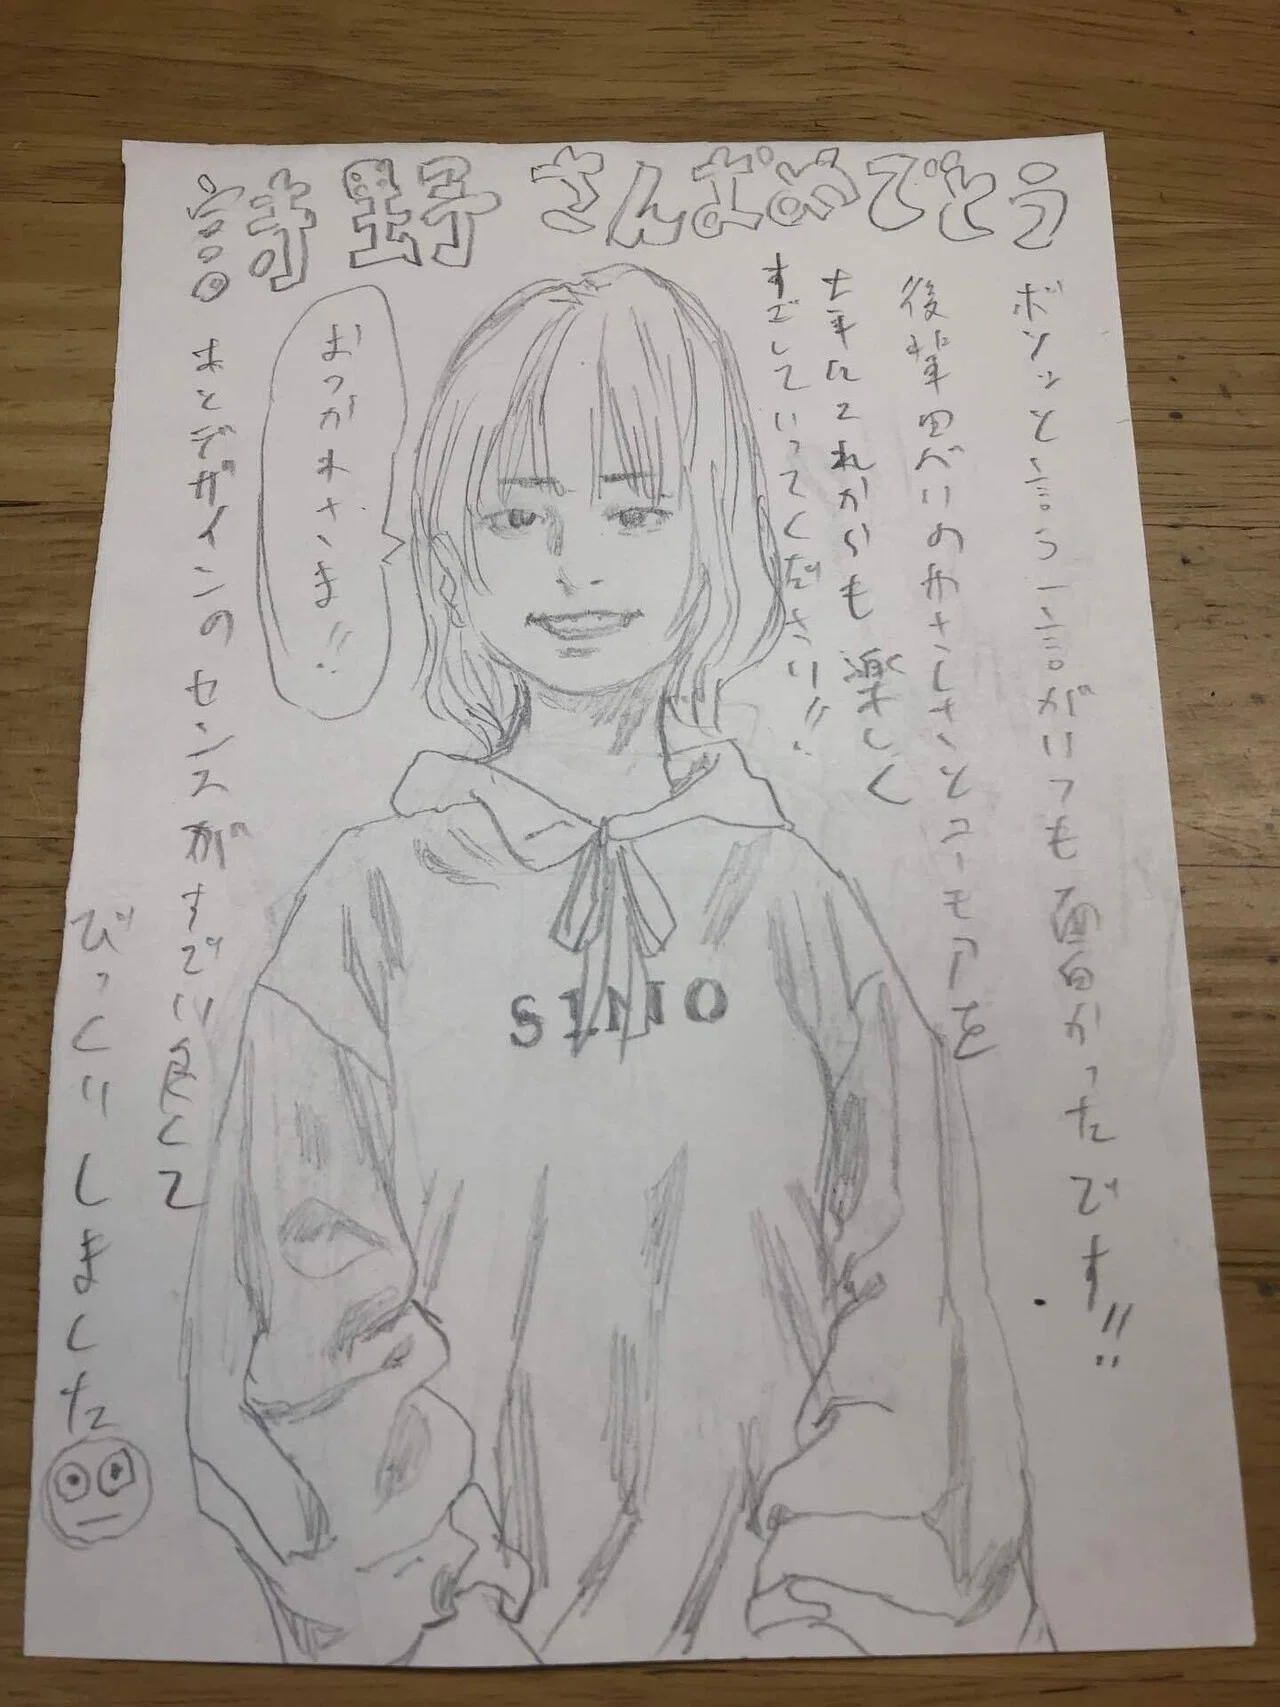 詩野さんおめでとう
ボソッと言う一言がいつも面白かったです!!
後輩思いのやさしさとユーモアを
大事にこれからも楽しく
すごしていってください!!
おつかれさま!!
あとデザインのセンスがすごい良くて
びっくりしました
SINO